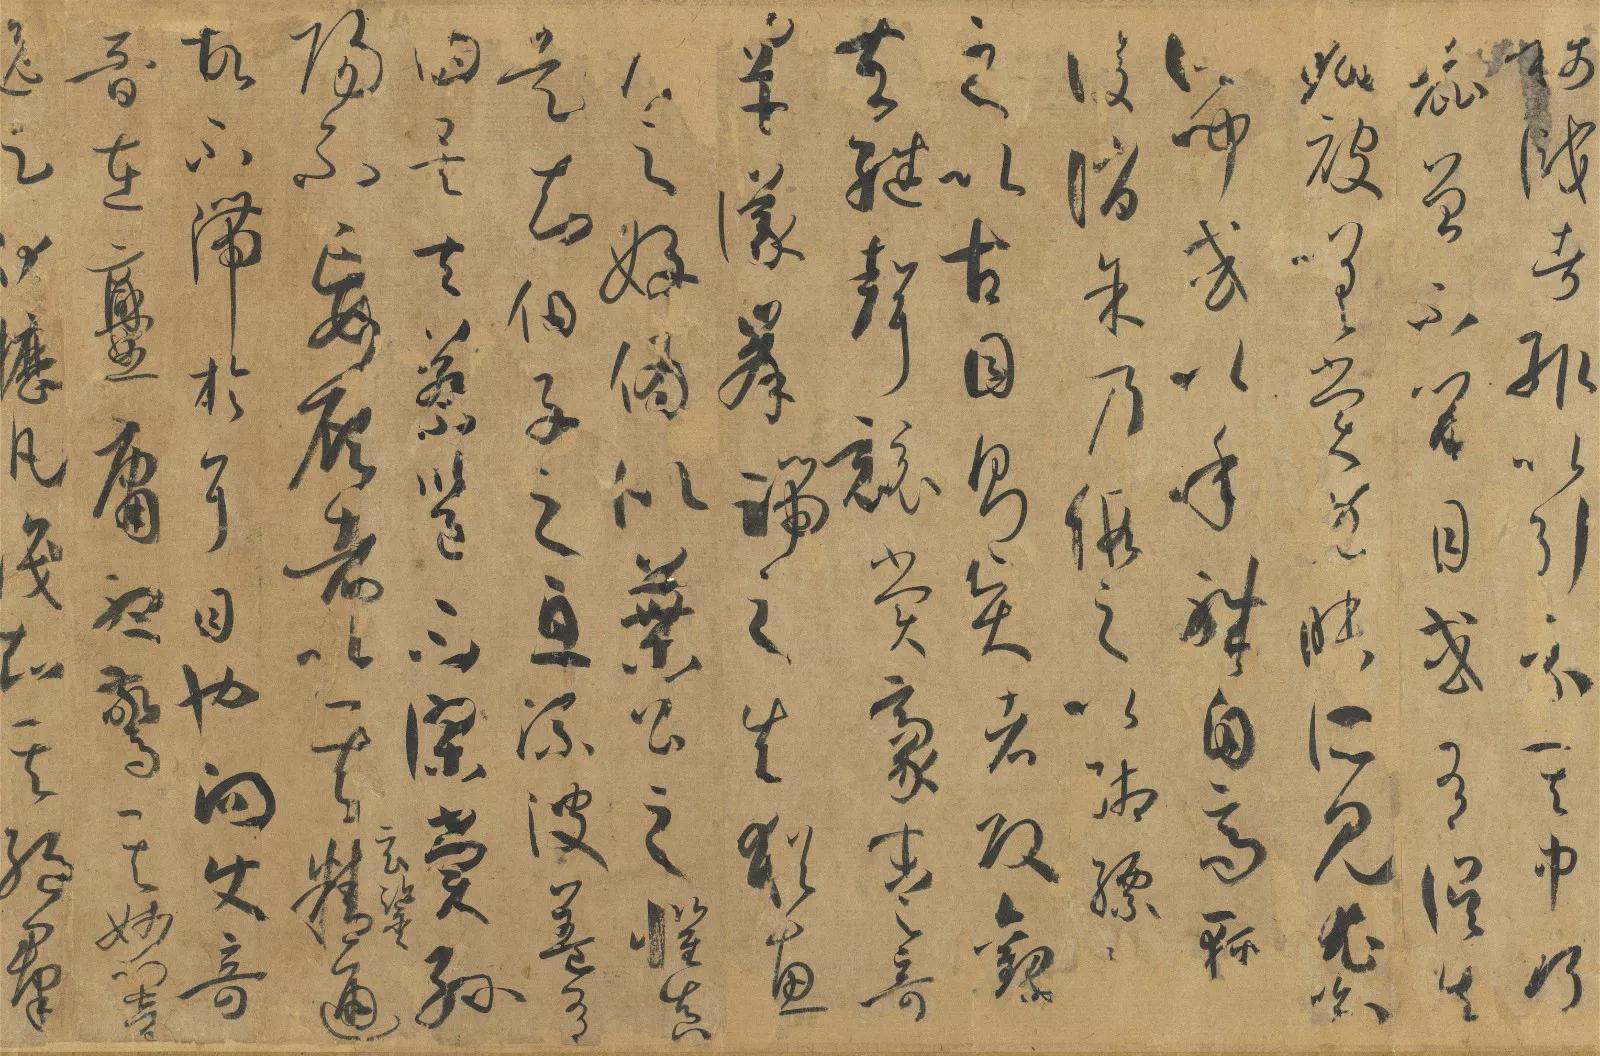 時稱識者輒以引示其中巧
麗曾不留目或有誤失
翻被嗟賞既昧所見尤喻
所聞或以年職自高輕
致陵誚余乃假之以緗縹題
之以古目則賢者改觀
愚夫繼聲競賞豪末之奇
罕議鋒端之失猶惠
侯之好偽似葉公之懼真
是知伯子之息流波蓋有
由矣夫蔡邕不謬賞孫
陽不妄顧者以其玄鑒精通
故不滯於耳目也向使奇
音在爨庸聽驚其妙響
逸足伏櫪凡識知其絕群